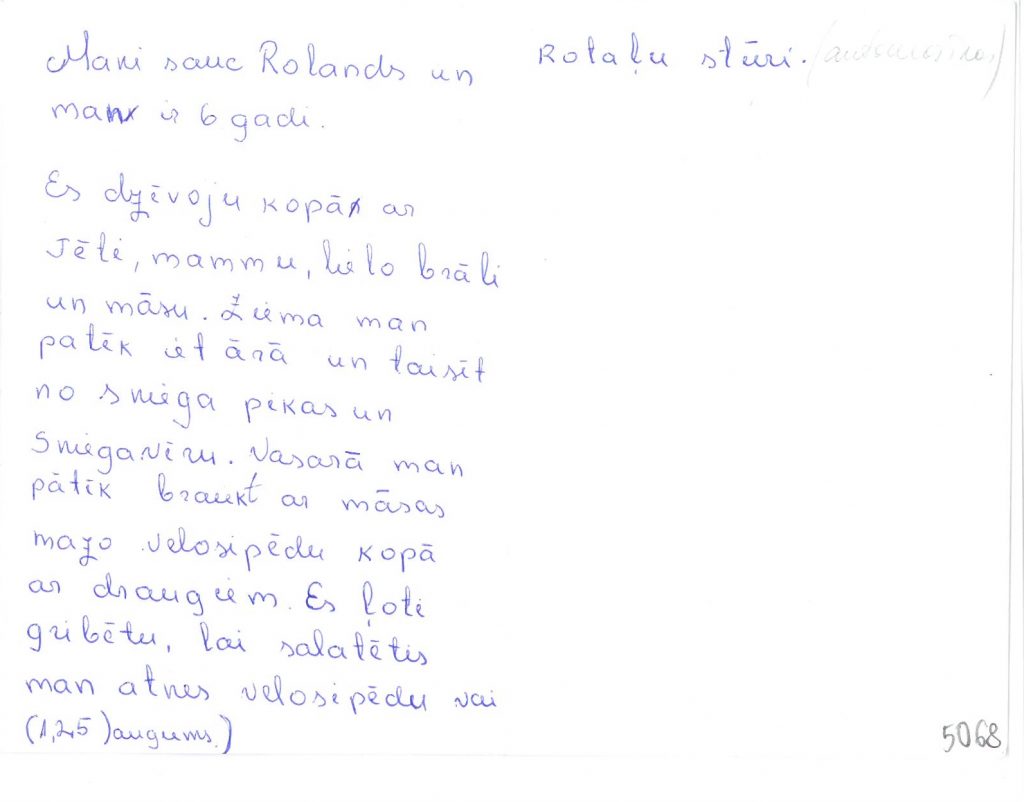 Mani sauc Rolands un
man ir 6 gadi.
Es dzīvoju kopā ar
Tēti, mammu, lielo brāli
un māsu. Ziema man
patēk iet ārā un taisīt
no sniega pikas un
Sniegavīru. Vasarā man
pātīk braukt ar māsas
mazo velosipēdu kopā
ar draugiem. Es ļoti
gribētu, lai salatētis
man atnes velosipēdu vai
(1,25) augums.)
Rotaļu stūri. (automašīnas)
5068